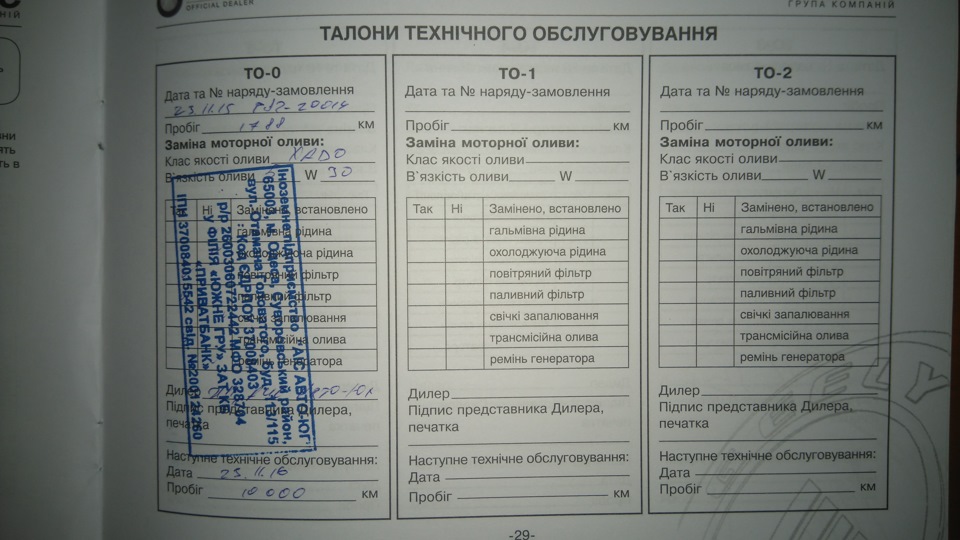 OFFICIAL DEALER
ГРУПА КОМПАНІЙ
ТАЛОНИ ТЕХНІЧНОГО ОБСЛУГОВУВАННЯ
ТО-0
Дата та № наряду-замовлення
23.11.15
Пробіг 1788 км
Заміна моторної оливи:
Клас якості оливи XADO
В`язкість оливи W 30
Так Ні Замінено, встановлено
гальмівна рідина
охолоджуюча рідина
повітряний фільтр
паливний фільтр
свічкі запалювання
трансмісійна олива
ремінь генератора
Дилер
Підпис представника Дилера,
печатка
Наступне технічне обслуговування:
Дата 23.11.16
Пробіг 10 000 км
Іноземне підприємство "АІС АВТО-ЮГ"
65003, м. Одеса, Суворовський район,
вул. Отамана Головатого, буд.
Код ЄДРПОУ
р/р 26003060722442 МФО 328704
У ФІЛІЯ «ЮЖНЕ ГРУ»
«ПРИВАТБАНК»
ІПН 370084015542 свід. №200122260
ТО-1
Дата та № наряду-замовлення
Пробіг км
Заміна моторної оливи:
Клас якості оливи
В`язкість оливи W
Так Ні Замінено, встановлено
гальмівна рідина
охолоджуюча рідина
повітряний фільтр
паливний фільтр
свічкі запалювання
трансмісійна олива
ремінь генератора
Дилер
Підпис представника Дилера,
печатка
Наступне технічне обслуговування:
Дата
Пробіг км
ТО-2
Дата та № наряду-замовлення
Пробіг км
Заміна моторної оливи:
Клас якості оливи
В`язкість оливи W
Так Ні Замінено, встановлено
гальмівна рідина
охолоджуюча рідина
повітряний фільтр
паливний фільтр
свічкі запалювання
трансмісійна олива
ремінь генератора
Дилер
Підпис представника Дилера,
печатка
Наступне технічне обслуговування:
Дата
Пробіг км
-29-